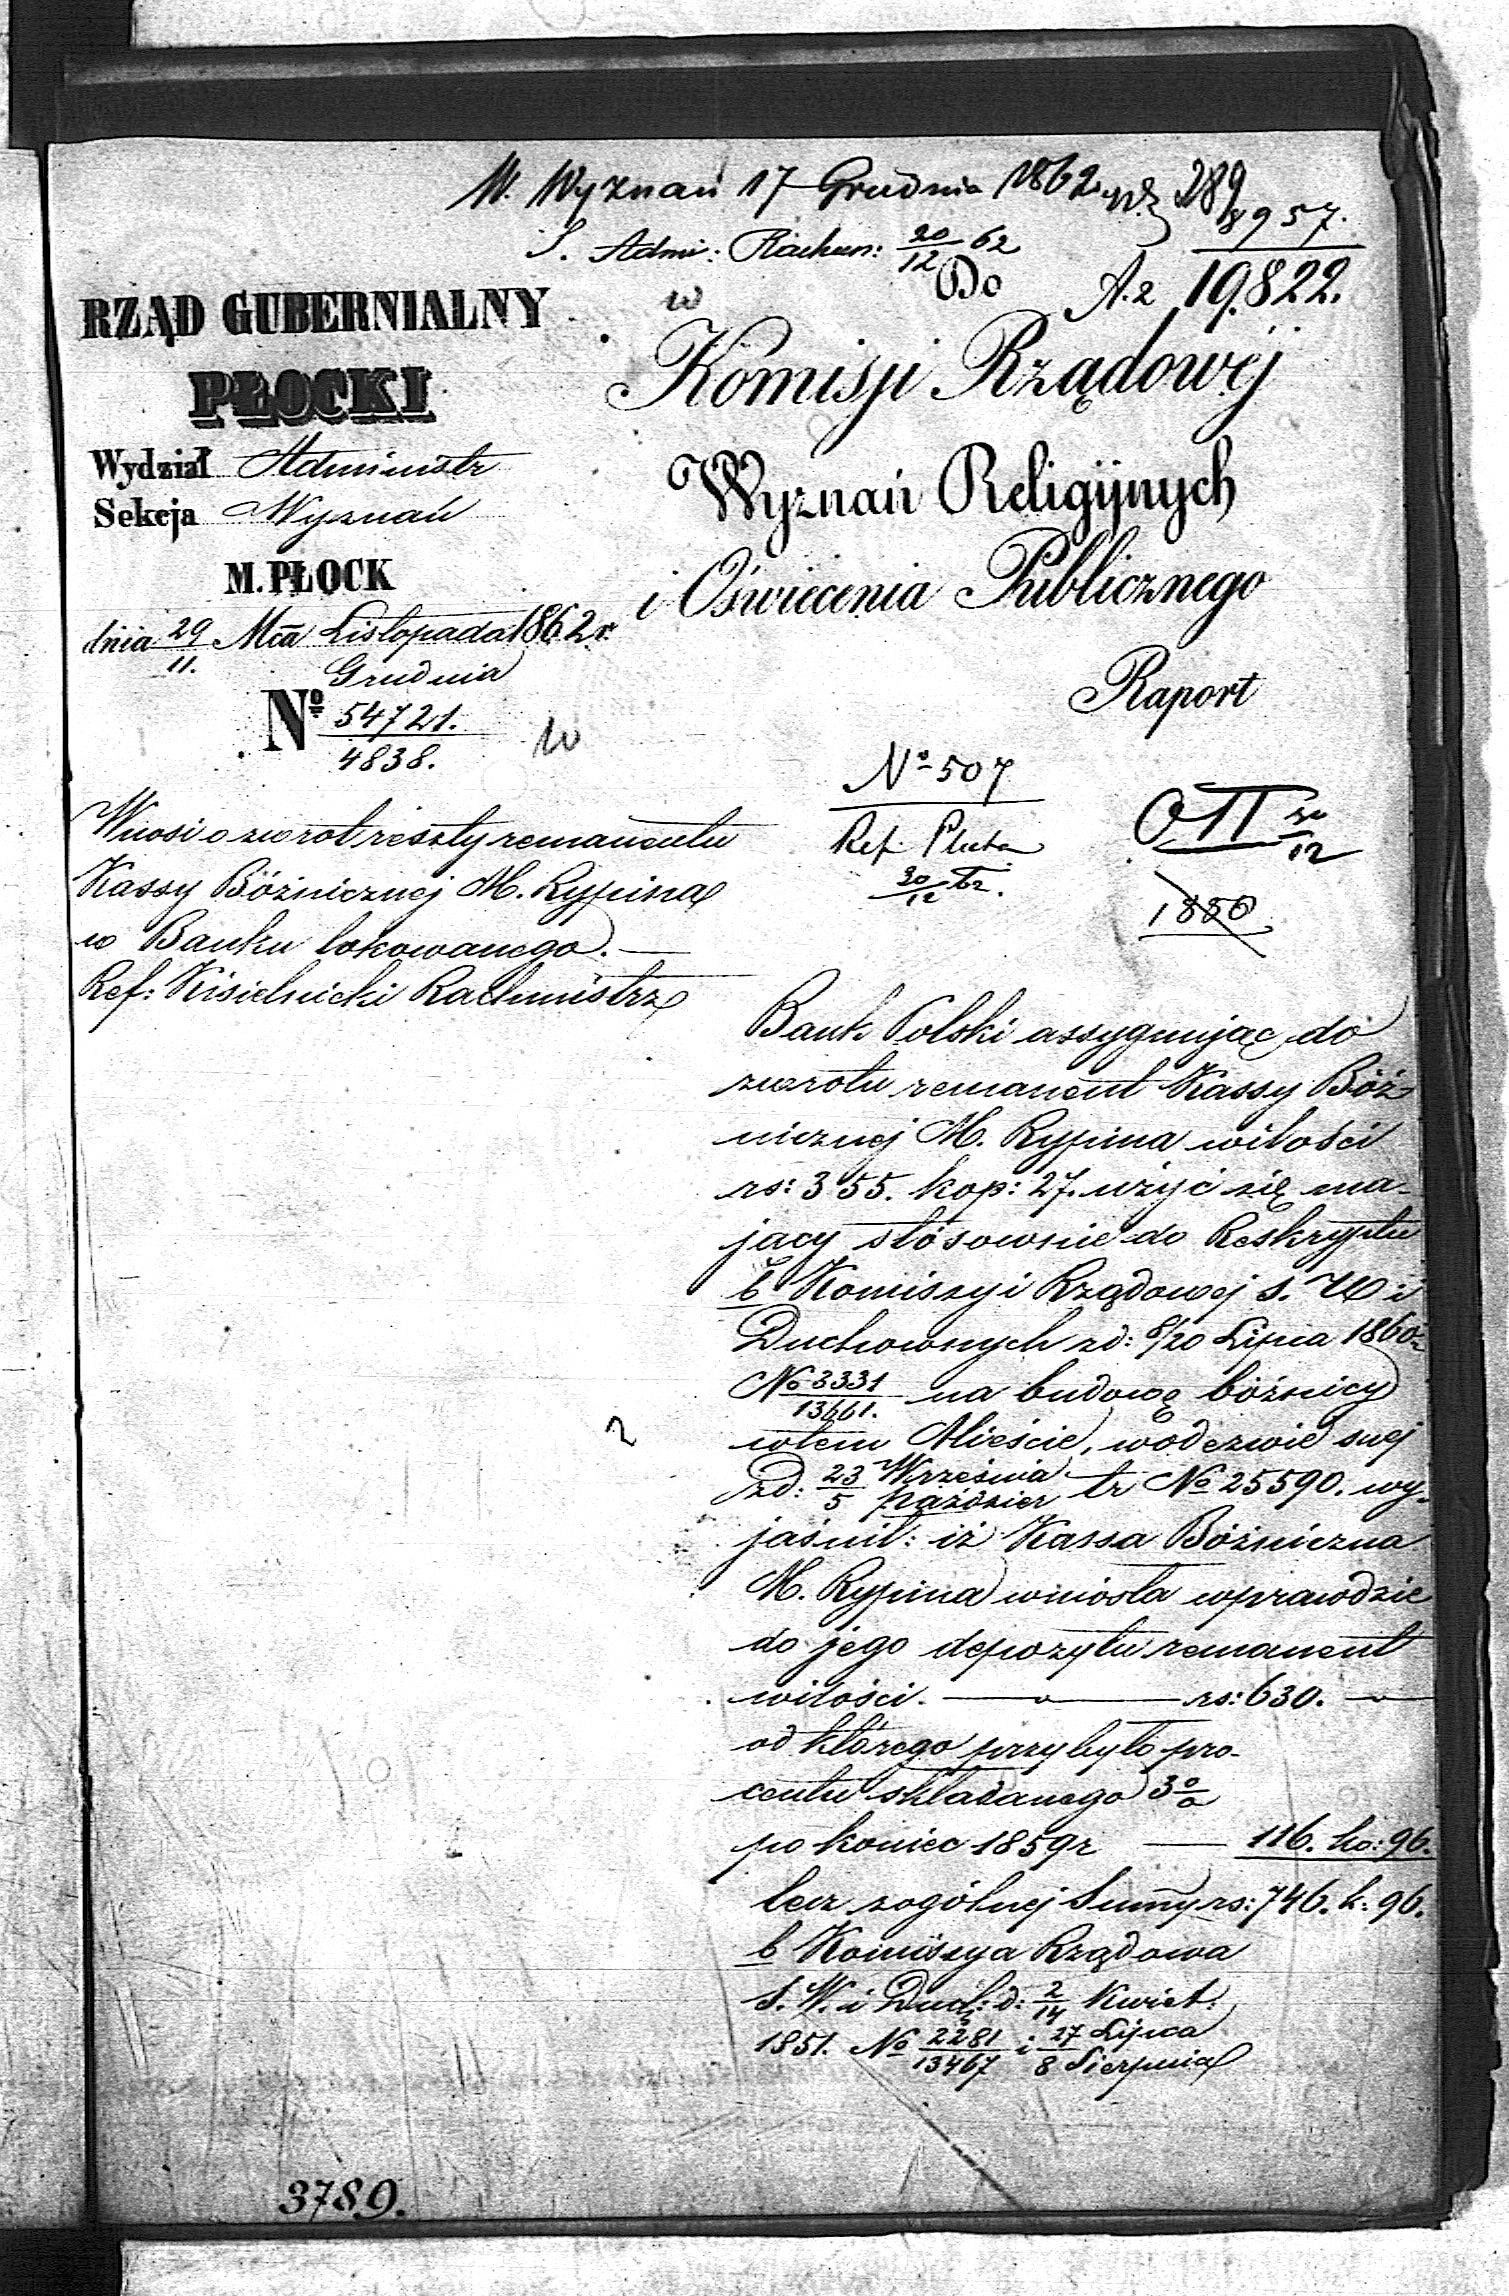 W. Wyznań 17 Grudnia 1862
289
8957.
S. Admi: Rachun: 20/12 62
A.2 19,822.
RZĄD GUBERNIALNY
PŁOCKI
Wydział Administr
Sekcja Wyznań
M. PŁOCK
dnia 29/11. Mca Listopada 1862 r.
Grudnia
Nº 54721.
4838.
Do
Komisji Rządowéj
Wyznań Religijnych
i Oświecenia Publicznego
Raport
Nº 507
Ref.
20/12 62.
1850
Wnosi o zwrot reszty remanentu
Kassy Bóżnicznej M. Rypina
w Banku lokowanego. —
Ref: Kisielnicki Rachmistrz
Bank Polski assygnując do
zwrotu remanent Kassy Bóż
nicznej M. Rypina wilości
rs: 355. kop: 27. użyć się ma-
jący stósownie do Reskryptu
b Komissyi Rządowej S. W i
Duchownych zd: 8/20 Lipca 1860 r
Nº 3331/13661. na budowę bóżnicy
wtem Mieście, wodezwie swej
zd: 23/5 Września/Paździer tr Nº 25590. wy-
jaśnił: iż Kassa Bóżniczna
M. Rypina wniosła wprawdzie
do jego depozytu remanent
wilości. — rs: 630. —
od którego przybyło pro-
centu składanego 3 %
po koniec 1859 r — 116. ko: 96.
lecz zogólnej Summy rs: 746. k: 96.
b Komissya Rządowa
S. W. i Duch: d: 2/14 Kwiet:
1851. Nº 2281/13467 i 27/8 Lipca/Sierpnia
3789.